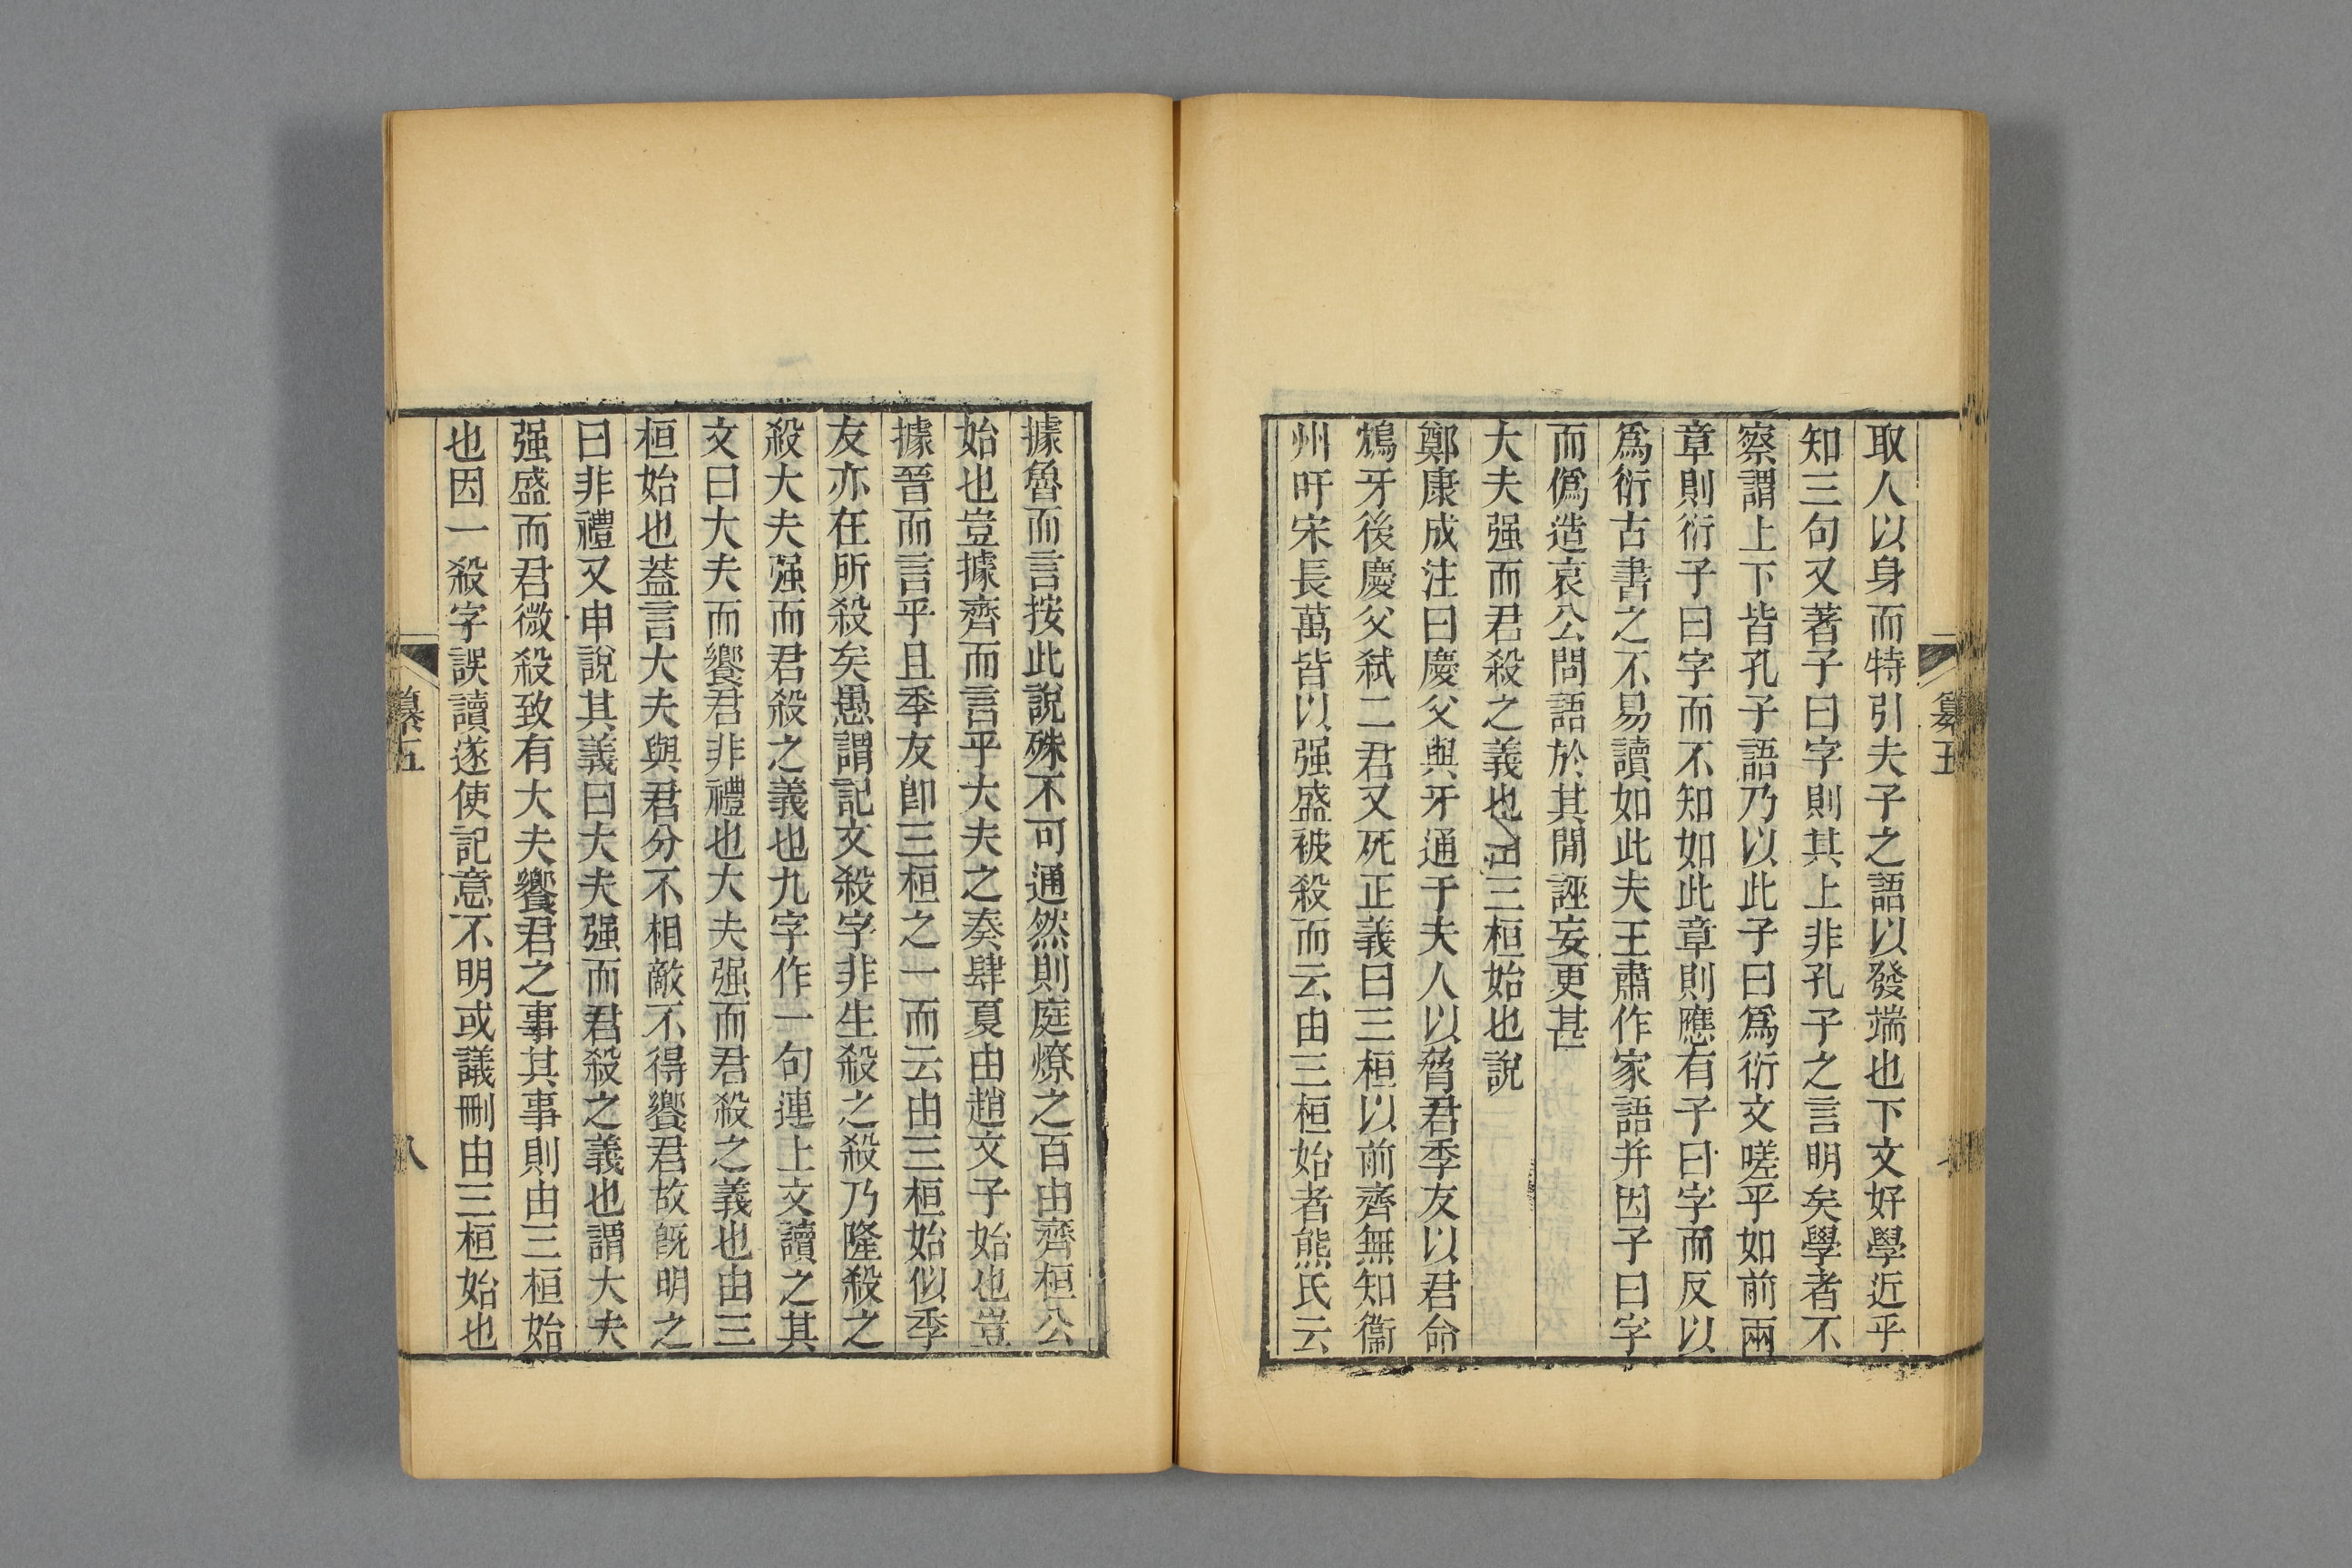 取人以身而特引夫子之語以發端也下文好學近乎
知三句又著子曰字則其上非孔子之言明矣學者不
察謂上下皆孔子語乃以此子曰爲衍文嗟乎如前兩
章則衍子曰字而不知如此章則應有子曰字而反以
爲衍古書之不易讀如此夫王肅作家語并因子曰字
而僞造哀公問語於其閒誣妄更甚
大夫强而君殺之義也由三桓始也說
鄭康成注曰慶父與牙通于夫人以脅君季友以君命
鴆牙後慶父弒二君又死正義曰三桓以前齊無知衞
州吁宋長萬皆以强盛被殺而云由三桓始者熊氏云
纂五
據魯而言按此說殊不可通然則庭燎之百由齊桓公
始也豈據齊而言乎大夫之奏肆夏由趙文子始也豈
據晉而言乎且季友卽三桓之一而云由三桓始似季
友亦在所殺矣愚謂記文殺字非生殺之殺乃隆殺之
殺大夫强而君殺之義也九字作一句連上文讀之其
文曰大夫而饗君非禮也大夫强而君殺之義也由三
桓始也蓋言大夫與君分不相敵不得饗君故旣明之
曰非禮又申說其義曰大夫强而君殺之義也謂大夫
强盛而君微殺致有大夫饗君之事其事則由三桓始
也因一殺字誤讀遂使記意不明或議刪由三桓始也
纂五
八